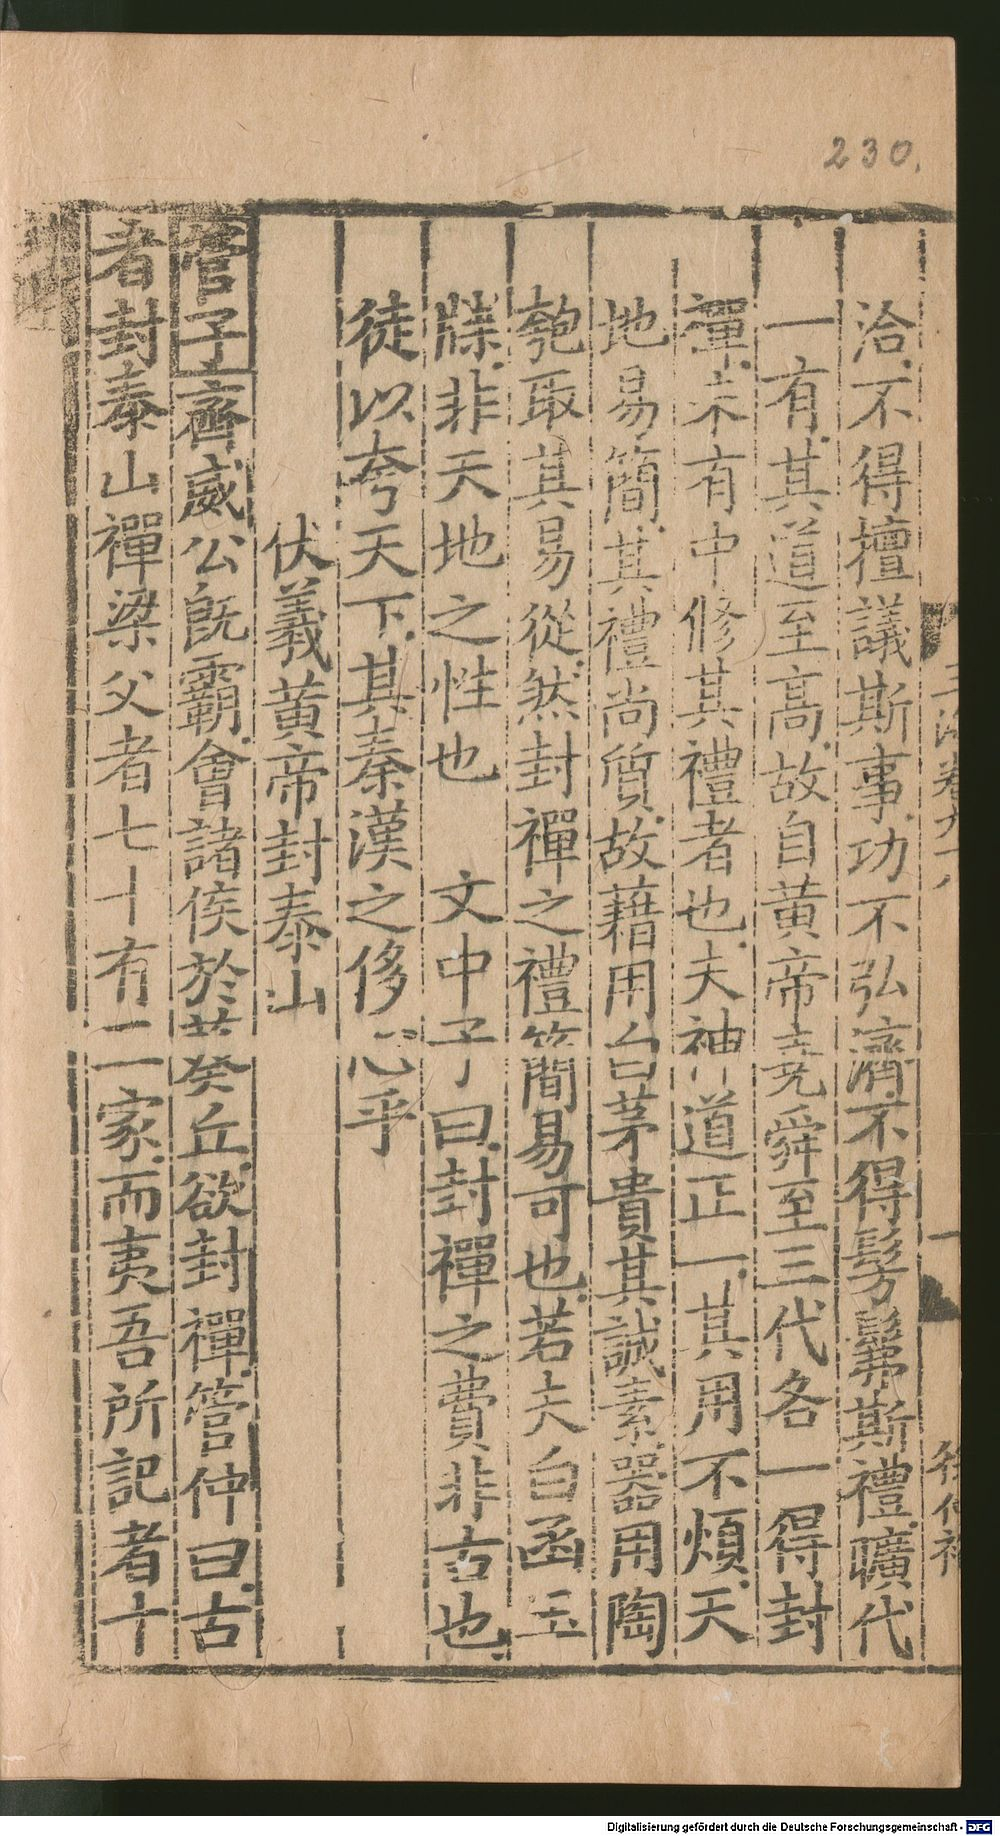 230.
洽不得擅議斯事功不弘濟不得髣髴斯禮曠代
一有其道至高故自黃帝堯舜至三代各一得封
禪未有中修其禮者也夫神道正一其用不煩天
地易簡其禮尚質故藉用白茅貴其誠素器用陶
匏取其易從然封禪之禮簡易可也若夫白函玉
牒非天地之性也 文中子曰封禪之費非古也
徒以夸天下其秦漢之侈心乎
伏羲黃帝封泰山
管子齊威公既霸會諸侯於葵丘欲封禪管仲曰古
者封泰山禪梁父者七十有二家而夷吾所記者十
Digitalisierung gefördert durch die Deutsche Forschungsgemeinschaft - DFG